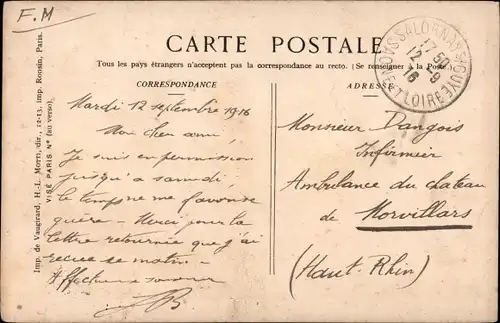 F. M
CARTE POSTALE
Tous les pays étrangers n'acceptent pas la correspondance au recto. (Se renseigner à la Poste.)
CORRESPONDANCE
Mardi 12 septembre 1916
Mon cher ami,
Je suis en permission
jusqu'à samedi,
le temps ne me favorise
guère - Merci pour la
lettre retournée que j'ai
reçue ce matin -
Affectueux souvenir
ADRESSE
Monsieur Dangois
Infirmier
Ambulance du chateau
de Morvillars
(Haut-Rhin)
SALORNAY-S-GUYE
17 50
12-9
16
ET LOIRE
Imp. de Vaugirard, H.-L. Motti, dir., 12-13, imp. Ronsin, Paris.
VISÉ PARIS Nº (au verso).